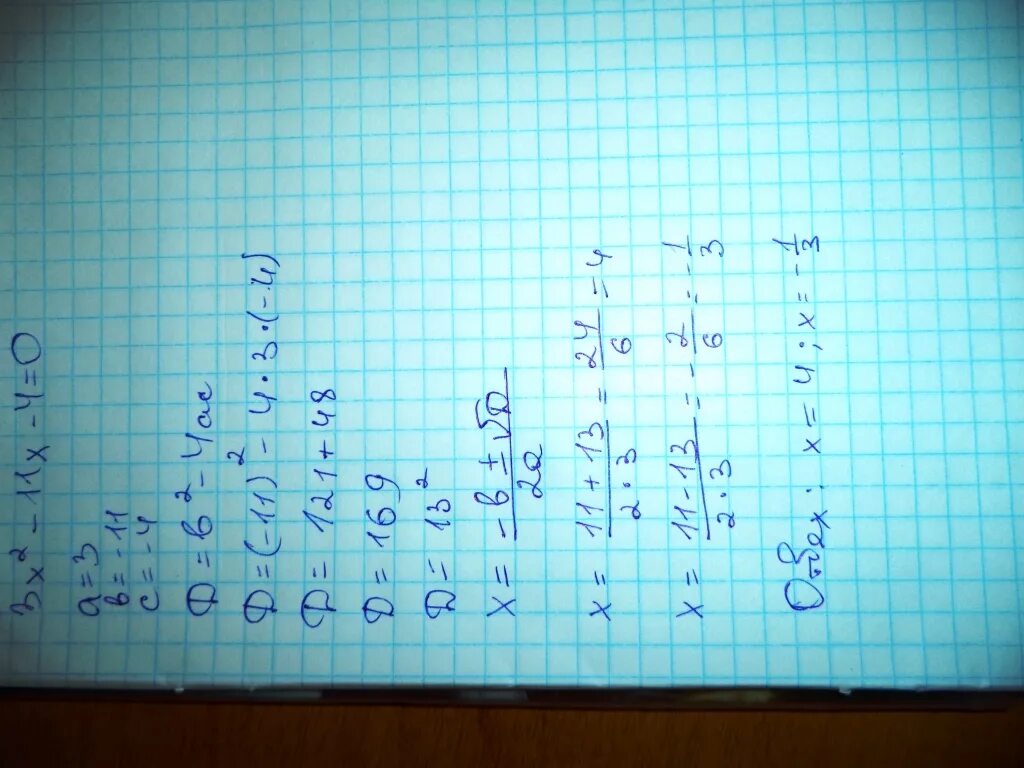 3x² - 11x - 4 = 0
a = 3
в = -11
c = -4
D = в² - 4ac
D = (-11)² - 4·3·(-4)
D = 121 + 48
D = 169
D = 13²
x = (-в ± √D)/(2a)
x = (11 + 13)/(2·3) = 24/6 = 4
x = (11 - 13)/(2·3) = -2/6 = -1/3
x = 4 ; x = -1/3